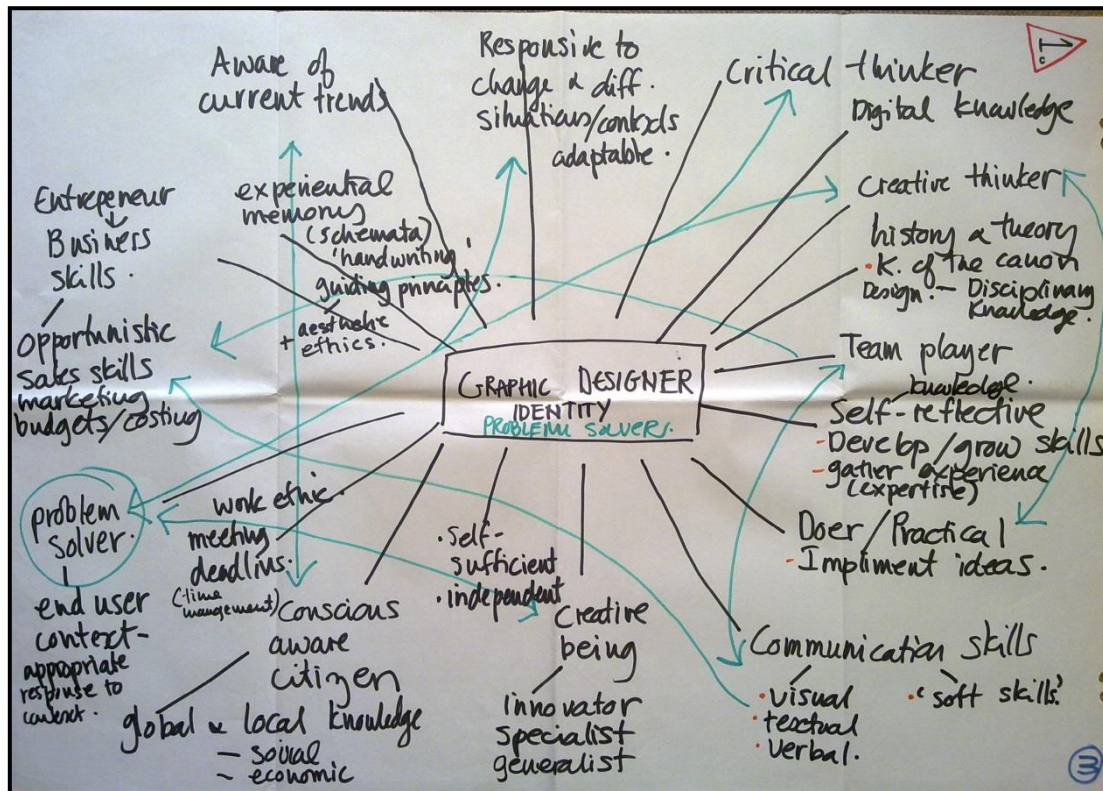 Aware of
current trends
Responsive to
change & diff.
situations/contexts
adaptable.
Critical thinker
Digital knowledge
Creative thinker
history & theory
• K. of the canon
Design. — Disciplinary
knowledge.
Team player
knowledge.
Self-reflective
- Develop/grow skills
- gather experience
(expertise)
Doer/Practical
- Impliment ideas.
Communication skills
• visual
• textual
• verbal.
• 'soft skills'
Creative
being
innovator
specialist
generalist
• self-
sufficient
• independent
Conscious
aware
citizen
global & local knowledge
— social
~ economic
work ethic.
meeting
deadlins.
(time
management)
problem
solver.
end user
context-
appropriate
response to
context.
Entrepeneur
Business
skills.
Opportunistic
sales skills
marketing
budgets/costing
experiential
memory
(schemata)
'handwriting'
guiding principles.
+ aesthetic
ethics.
GRAPHIC DESIGNER
IDENTITY
PROBLEM SOLVERS.
3